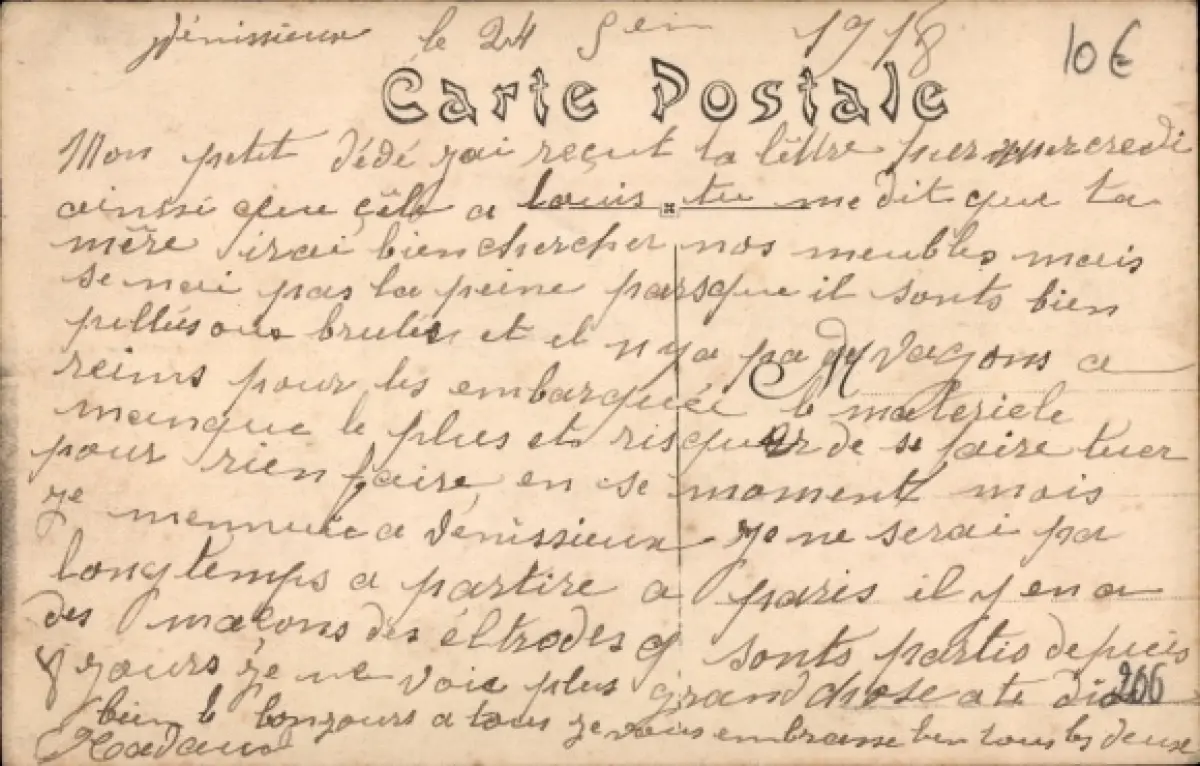 Vénissieux le 24 Jen 1918
10€
Carte Postale
Mon petit dédé jai reçut ta lêttre hier mercredi
ainssi que çêla a Louis tu me dit que ta
mêre irai bien chercher nos meubles mais
se nai pas la peine parsque il sonts bien
pillés ous brulés et il nya pa de vagons a
reims pour les embarquéé le materiele
manque le plus et risquer de se faire tuer
pour rien faire en se moment mois
je mennuie a Vénissieux je ne serai pa
longtemps a partire a paris il y en a
des maçons des éltrodes q sonts partis depuis
8 jours je ne voie plus grand chose a te dire
206
bien le bonjours a tous je vous embrasse ben tous les deux